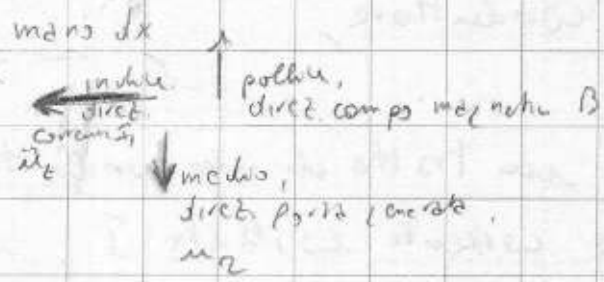 mano dx
indice
direz.
corrente,
u_t
pollice,
direz. campo magnetic B
medio,
direz. forza generata,
u_r